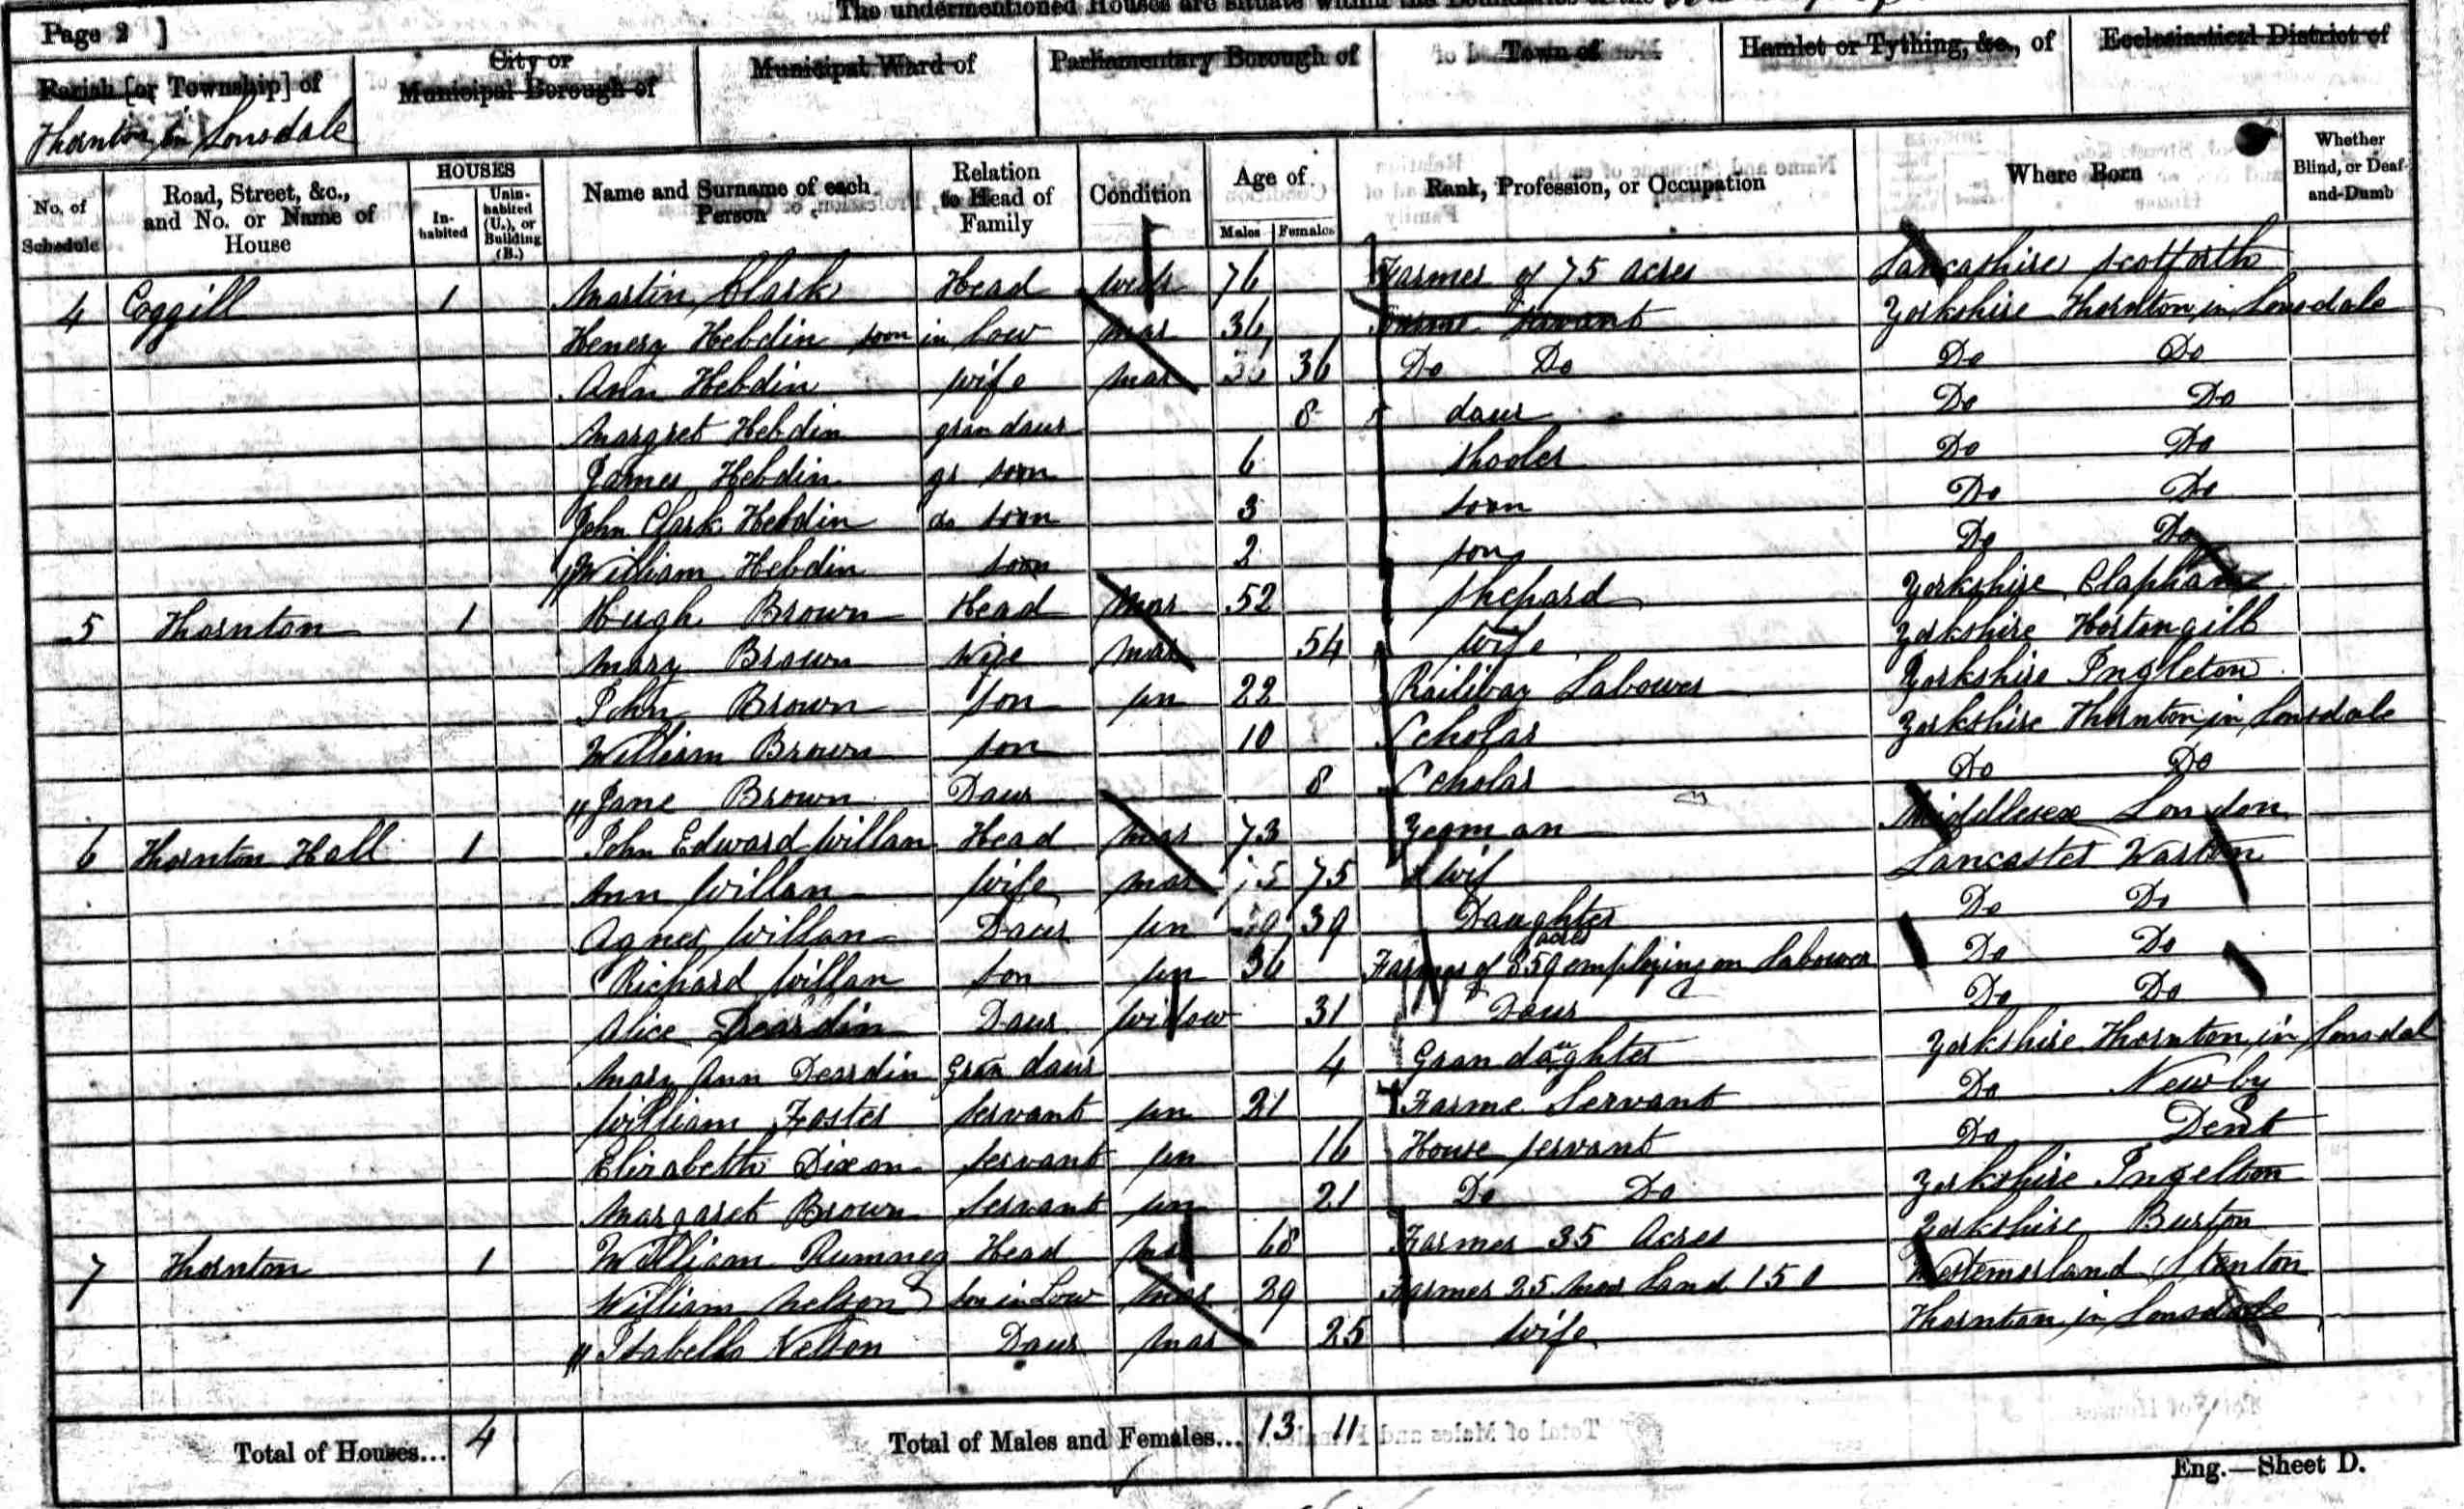 The undermentioned Houses are situate within the Boundaries of the
Page 2 ]
Parish [or Township] of
Thornton in Lonsdale
City or
Municipal Borough of
Municipal Ward of
Parliamentary Borough of
Town of
Hamlet or Tything, &c., of
Ecclesiastical District of
No. of Schedule
Road, Street, &c., and No. or Name of House
HOUSES
In-habited
Unin-habited (U.), or Building (B.)
Name and Surname of each Person
Relation to Head of Family
Condition
Age of
Males
Females
Rank, Profession, or Occupation
Where Born
Whether Blind, or Deaf-and-Dumb
4 Coggill 1 Martin Clark Head widr 76 Farmer of 75 acres Lancashire Scotforth
Henery Hebdin soon in Low mar 36 Farme Servant Yorkshire Thornton in Lonsdale
Ann Hebdin wife mar 36 36 Do Do Do Do
Margret Hebdin gran daur 8 daur Do Do
James Hebdin gr soon 6 shooler Do Do
John Clark Hebdin do soon 3 soon Do Do
William Hebdin soon 2 son Do Do
5 Thornton 1 Hugh Brown Head Mar 52 shepard Yorkshire Clapham
Mary Brown Wife Mar 54 wife Yorkshire Hortongill
John Brown son un 22 Railway Labower Yorkshire Ingleton
William Brown son 10 Scholar Yorkshire Thornton in Lonsdale
" Jane Brown Daur 8 Scholar Do Do
6 Thornton Hall 1 John Edward Willan Head mar 73 Yeoman Middlesex London
Ann Willan Wife mar 75 75 wif Lancaster Warton
Agnes Willan Daur un 39 39 Daughter Do Do
Richard Willan son un 36 Farmer of 359 acres employing on Labower Do Do
Alice Deardin Daur Widow 31 Daur Do Do
Mary Ann Deardin Gran daur 4 Gran daughter Yorkshire Thornton in Lonsdal
William Foster servant un 21 Farme Servant Do Newby
Elizabeth Dixon servant un 16 House servant Do Dent
Margaret Brown servant un 21 Do Do Yorkshire Ingelton
7 Thornton 1 William Rumney Head 68 Farmer 35 Acres Yorkshire Burton
William Nelson son in Low mar 29 Farmer 25 Land 150 Westemorland Stenton
" Isabella Nelson Daur mar 25 wife Thornton in Lonsdale
Total of Houses... 4
Total of Males and Females... 13 11
Eng.—Sheet D.